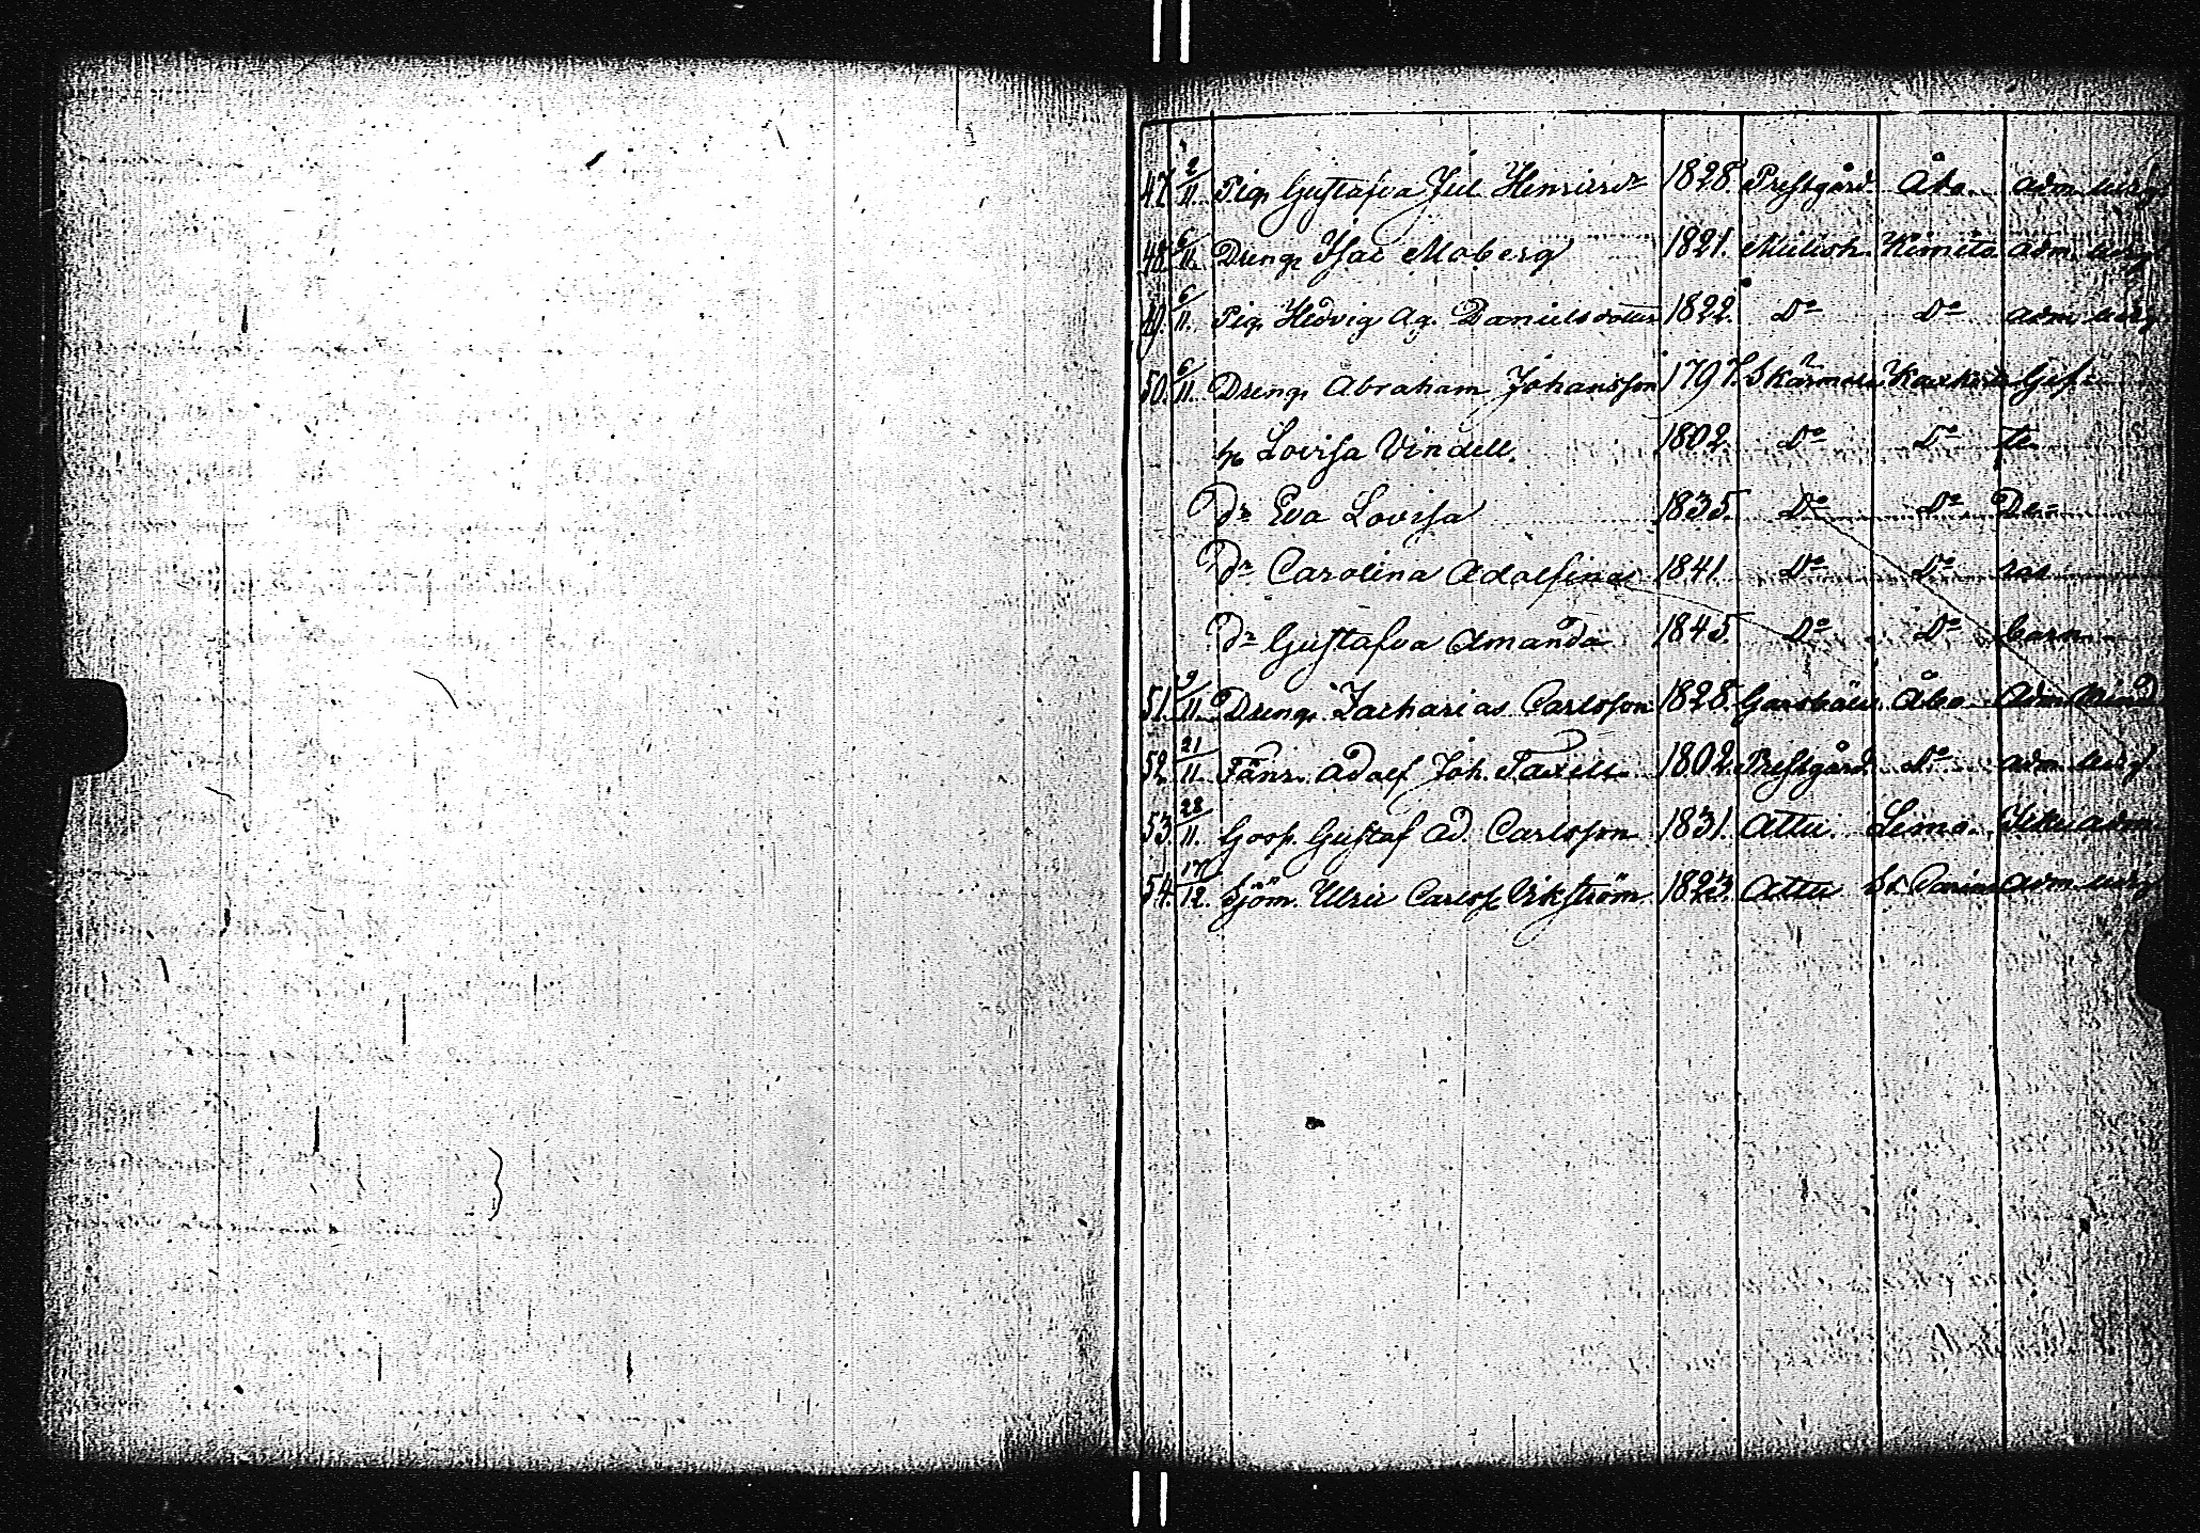 47. 2/11. Pig. Gustafva Jul. Henricsdr 1828 Prestgård Åbo adm.
48. 6/11. Dreng. Isac Moberg 1821. Kimito adm.
49. 6/11. Pig. Hedvig Ag. Danielsdotter 1822. Do Do adm.
50. 6/11. Dreng. Abraham Johansson 1797. Gifte
h. Lovisa Vindell. 1802. Do Do
Dr Eva Lovisa 1835. Do Do De-
Dr Carolina Adolfina 1841. Do Do ras
Dr Gustafva Amanda 1845. Do Do barn
51. 9/11. Dreng. Zacharias Carlsson 1828. Åbo Adm.
52. 21/11. Adolf Joh. Taxell 1802. Prestgård Do adm.
53. 28/11. Goss. Gustaf Ad. Carlsson 1831. Attu Lemo. Icke adm.
54. 17/12. Sjöm. Ulric Carlss. Vikström 1823. Attu adm.